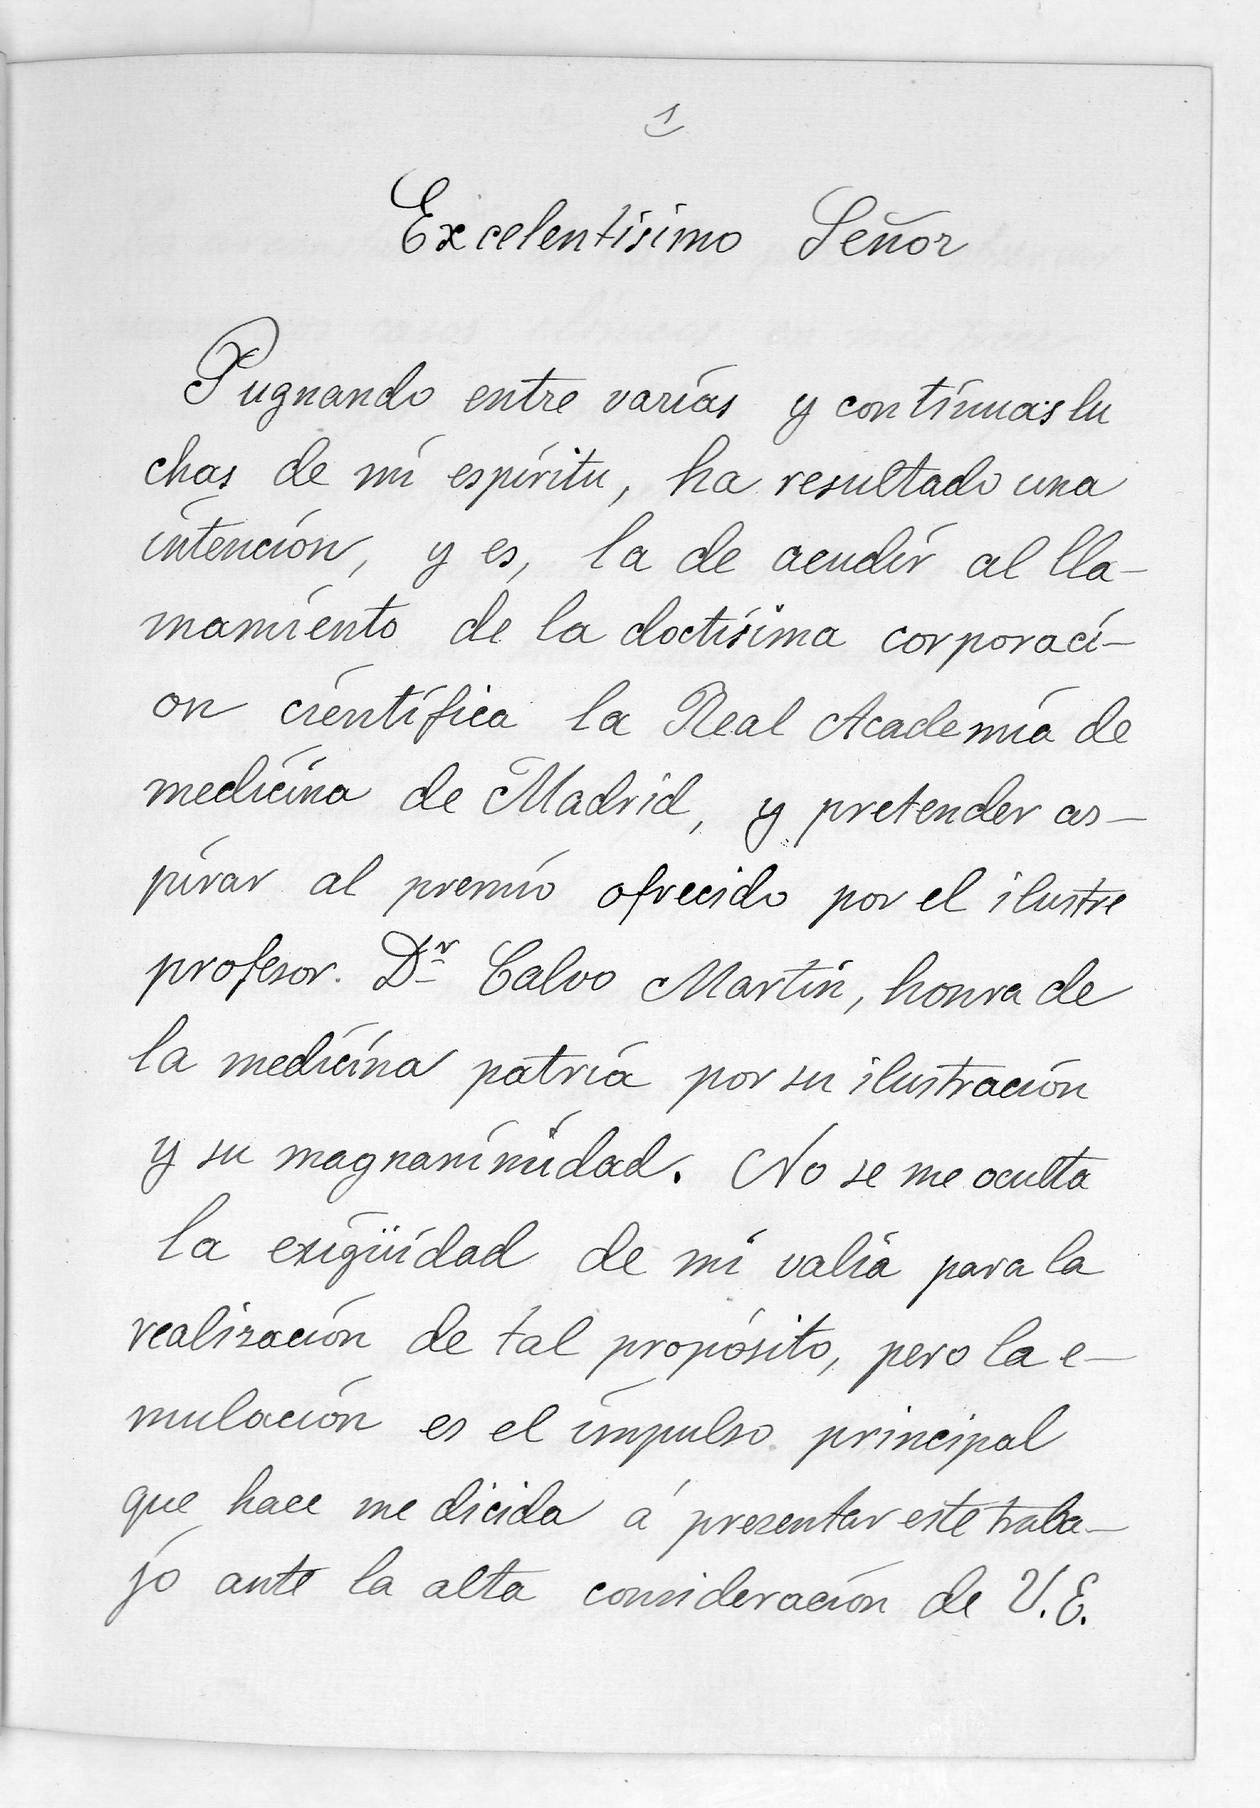 1
Excelentísimo Señor
Pugnando entre varias y continuas lu
chas de mi espíritu, ha resultado una
intención, y es, la de acudir al lla-
mamiento de la doctísima corporaci-
on científica la Real Academia de
medicina de Madrid, y pretender as-
pirar al premio ofrecido por el ilustre
profesor. Dr Calvo Martin, honra de
la medicina patria por su ilustración
y su magnanimidad. No se me oculta
la exigüidad de mi valia para la
realización de tal propósito, pero la e-
mulación es el impulso principal
que hace me dicida á presentar este traba-
jo ante la alta consideración de V.E.